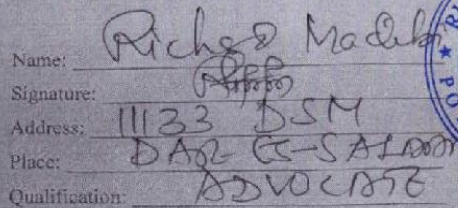 Name: Richard Madibi
Signature:
Address: 11133 DSM
Place: DAR ES-SALAAM
Qualification: ADVOCATE